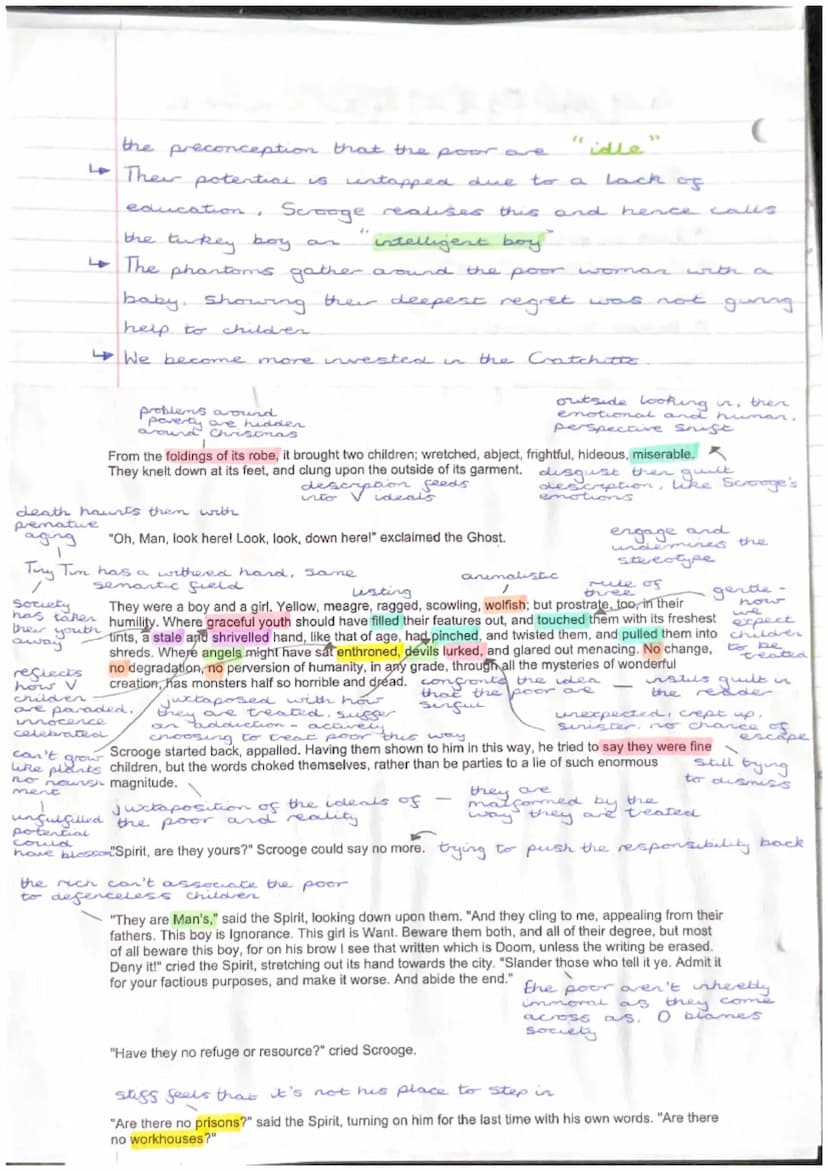 the preconception that the poor are "idle"
↳ Their potential is untapped due to a lack of
education, Scrooge realises this and hence calls
the turkey boy an "intelligent boy"
↳ The phantoms gather around the poor woman with a
baby, showing their deepest regret was not giving
help to children
↳ We become more invested in the Cratchits.
problems around
poverty are hidden
around Christmas
outside looking in, then
emotional and human,
perspective shift
From the foldings of its robe, it brought two children; wretched, abject, frightful, hideous, miserable.
They knelt down at its feet, and clung upon the outside of its garment.
disgust then guilt
description, like Scrooge's
emotions
description feeds
into V ideals
death haunts them with
premature
aging
"Oh, Man, look here! Look, look, down here!" exclaimed the Ghost.
engage and
undermines the
stereotype
Tiny Tim has a withered hand, same
semantic field
listing
animalistic
rule of
three
gentle -
how
we
expect
children
to be
treated
society
has taken
their youth
away
They were a boy and a girl. Yellow, meagre, ragged, scowling, wolfish; but prostrate, too, in their
humility. Where graceful youth should have filled their features out, and touched them with its freshest
tints, a stale and shrivelled hand, like that of age, had pinched, and twisted them, and pulled them into
shreds. Where angels might have sat enthroned, devils lurked, and glared out menacing. No change,
no degradation, no perversion of humanity, in any grade, through all the mysteries of wonderful
creation, has monsters half so horrible and dread.
confronts the idea
that the poor are
sinful
— instils guilt in
the reader
reflects
how V
children
are paraded,
innocence
celebrated
juxtaposed with how
they are treated, sugger
an addiction - actively
choosing to treat poor this way
unexpected, crept up,
sinister, no chance of
escape
Scrooge started back, appalled. Having them shown to him in this way, he tried to say they were fine
children, but the words choked themselves, rather than be parties to a lie of such enormous
magnitude.
still trying
to dismiss
can't grow
like plants
no nourish
ment
unfulfilled
potential
could
have blossom
juxtaposition of the ideals of
the poor and reality
— they are
malformed by the
way they are treated
"Spirit, are they yours?" Scrooge could say no more.
trying to push the responsibility back
the rich can't associate the poor
to defenceless children
"They are Man's," said the Spirit, looking down upon them. "And they cling to me, appealing from their
fathers. This boy is Ignorance. This girl is Want. Beware them both, and all of their degree, but most
of all beware this boy, for on his brow I see that written which is Doom, unless the writing be erased.
Deny it!" cried the Spirit, stretching out its hand towards the city. "Slander those who tell it ye. Admit it
for your factious purposes, and make it worse. And abide the end."
the poor aren't
immoral as they come
across as. D blames
society
"Have they no refuge or resource?" cried Scrooge.
still feels that it's not his place to step in
"Are there no prisons?" said the Spirit, turning on him for the last time with his own words. "Are there
no workhouses?"